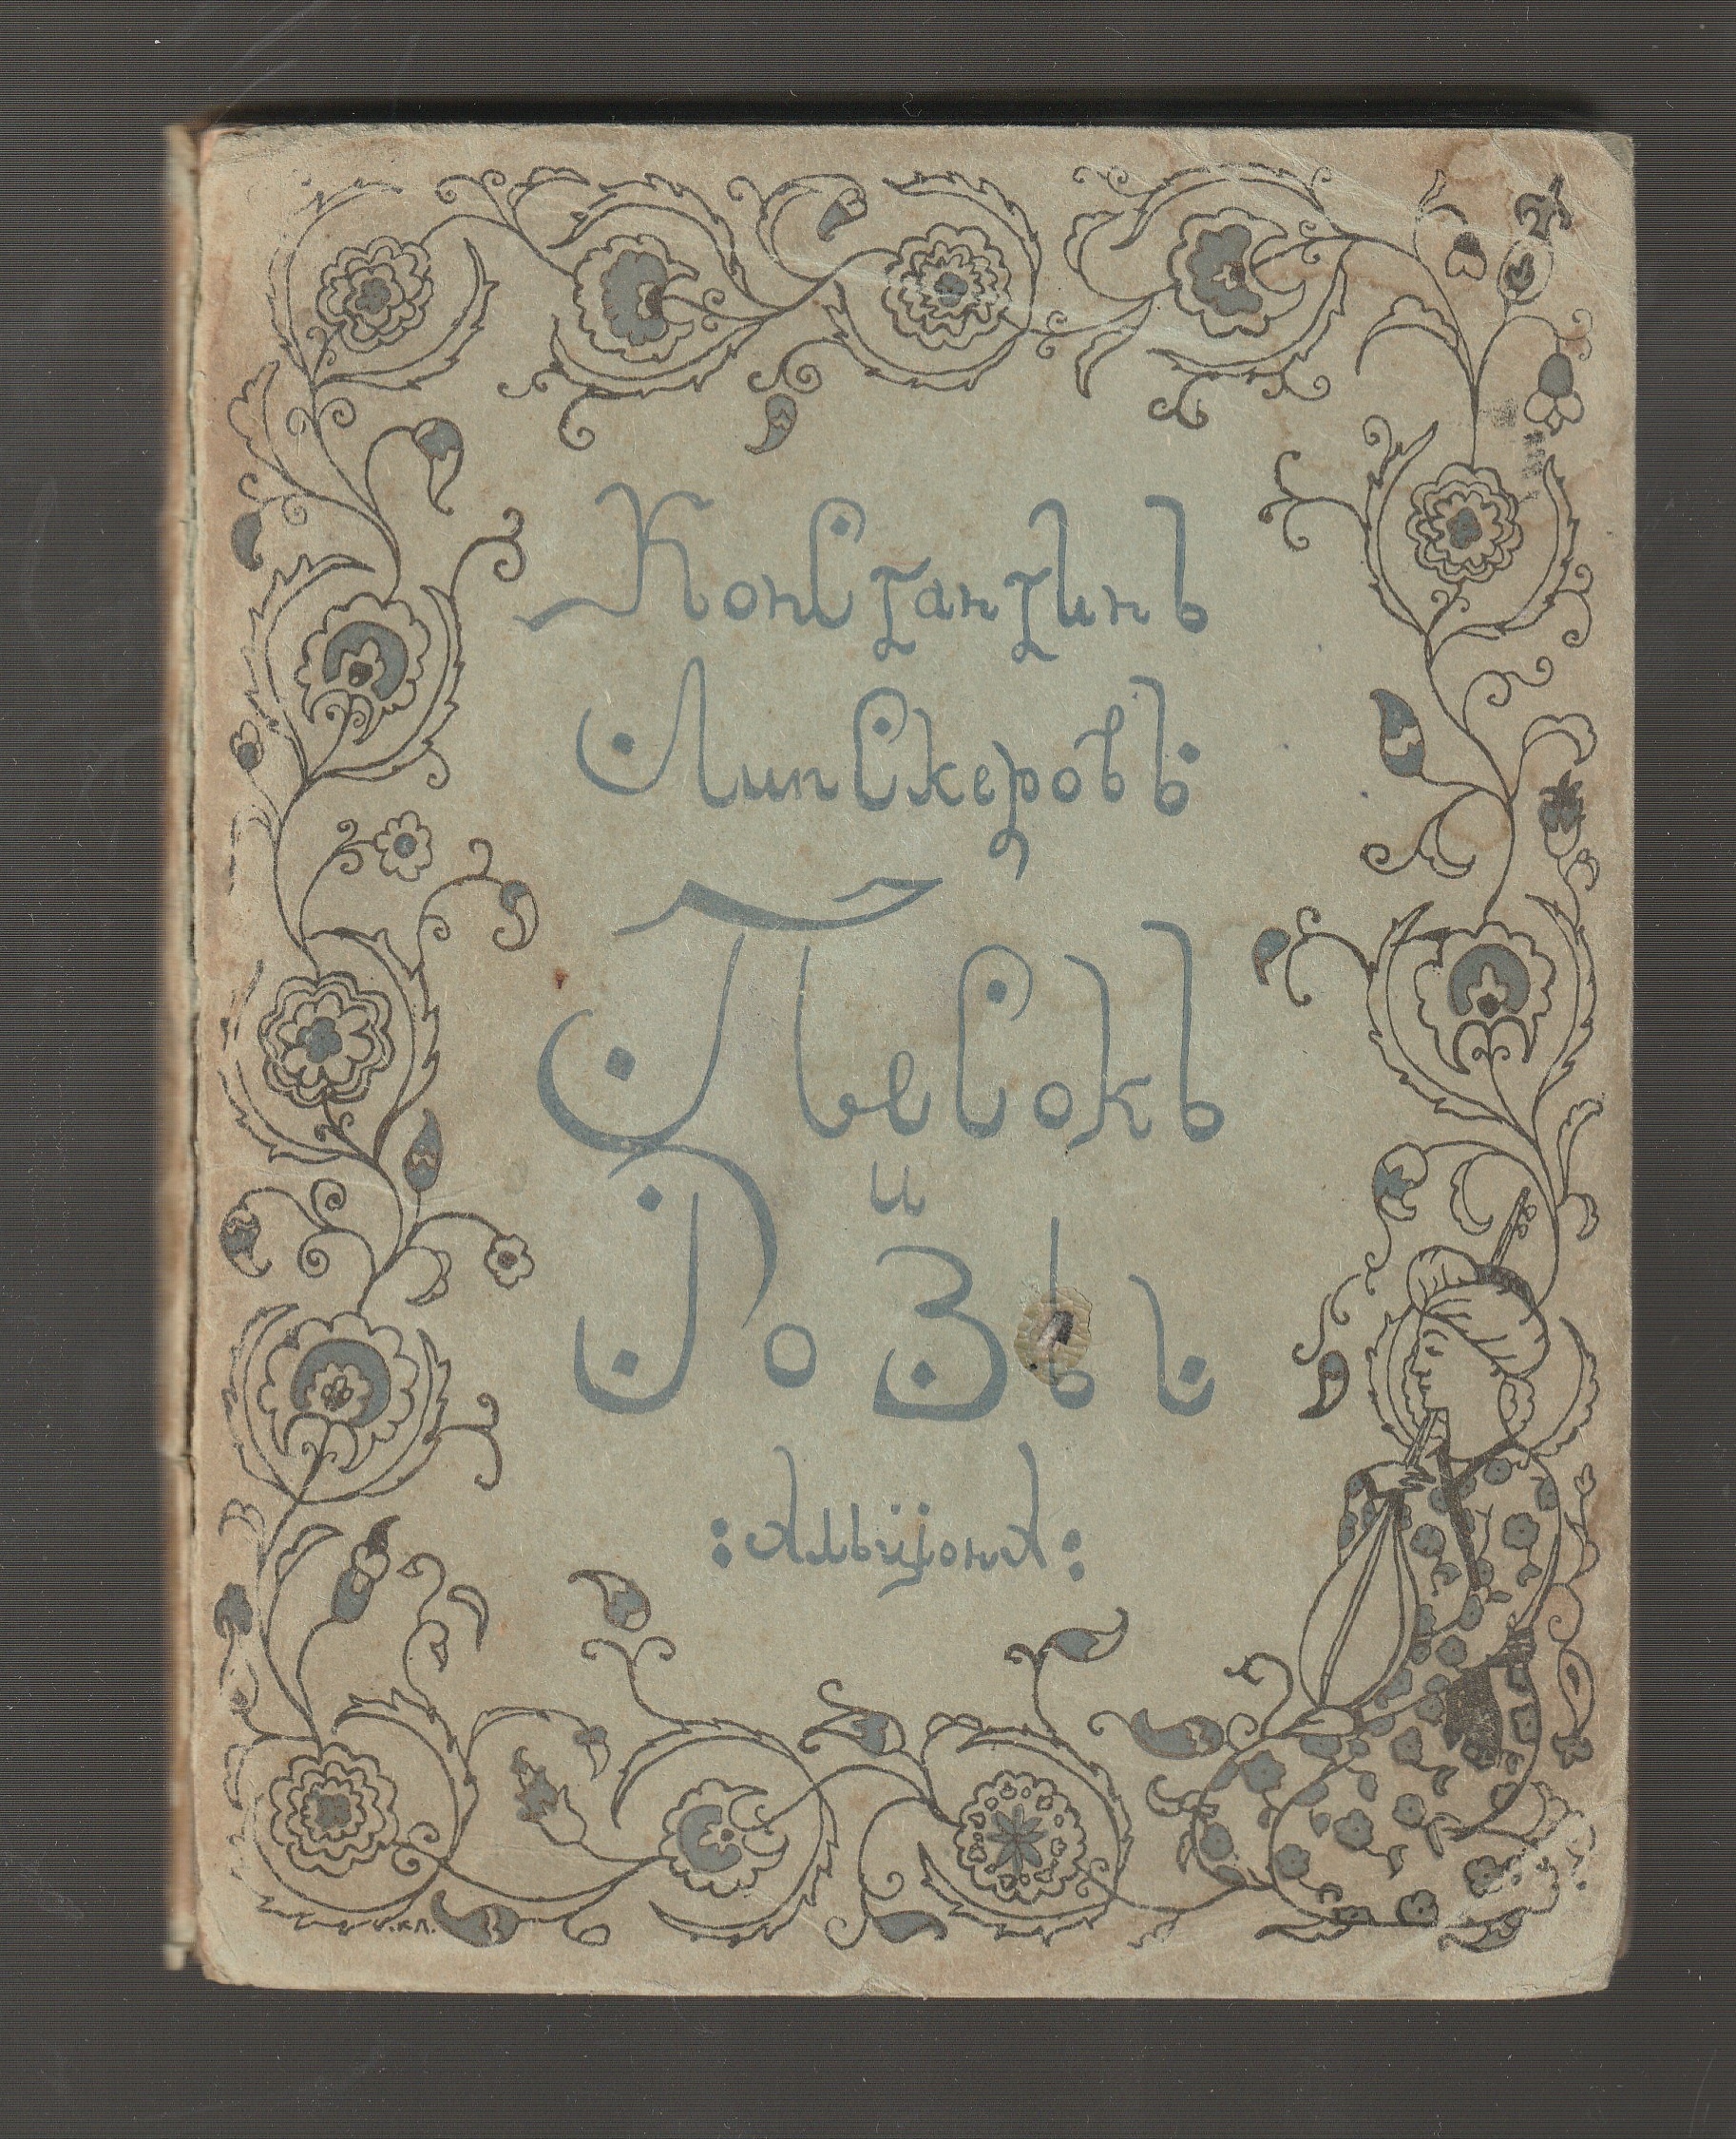 Константинъ
Липскеровъ
Песокъ
и
Розы
:Альціона: